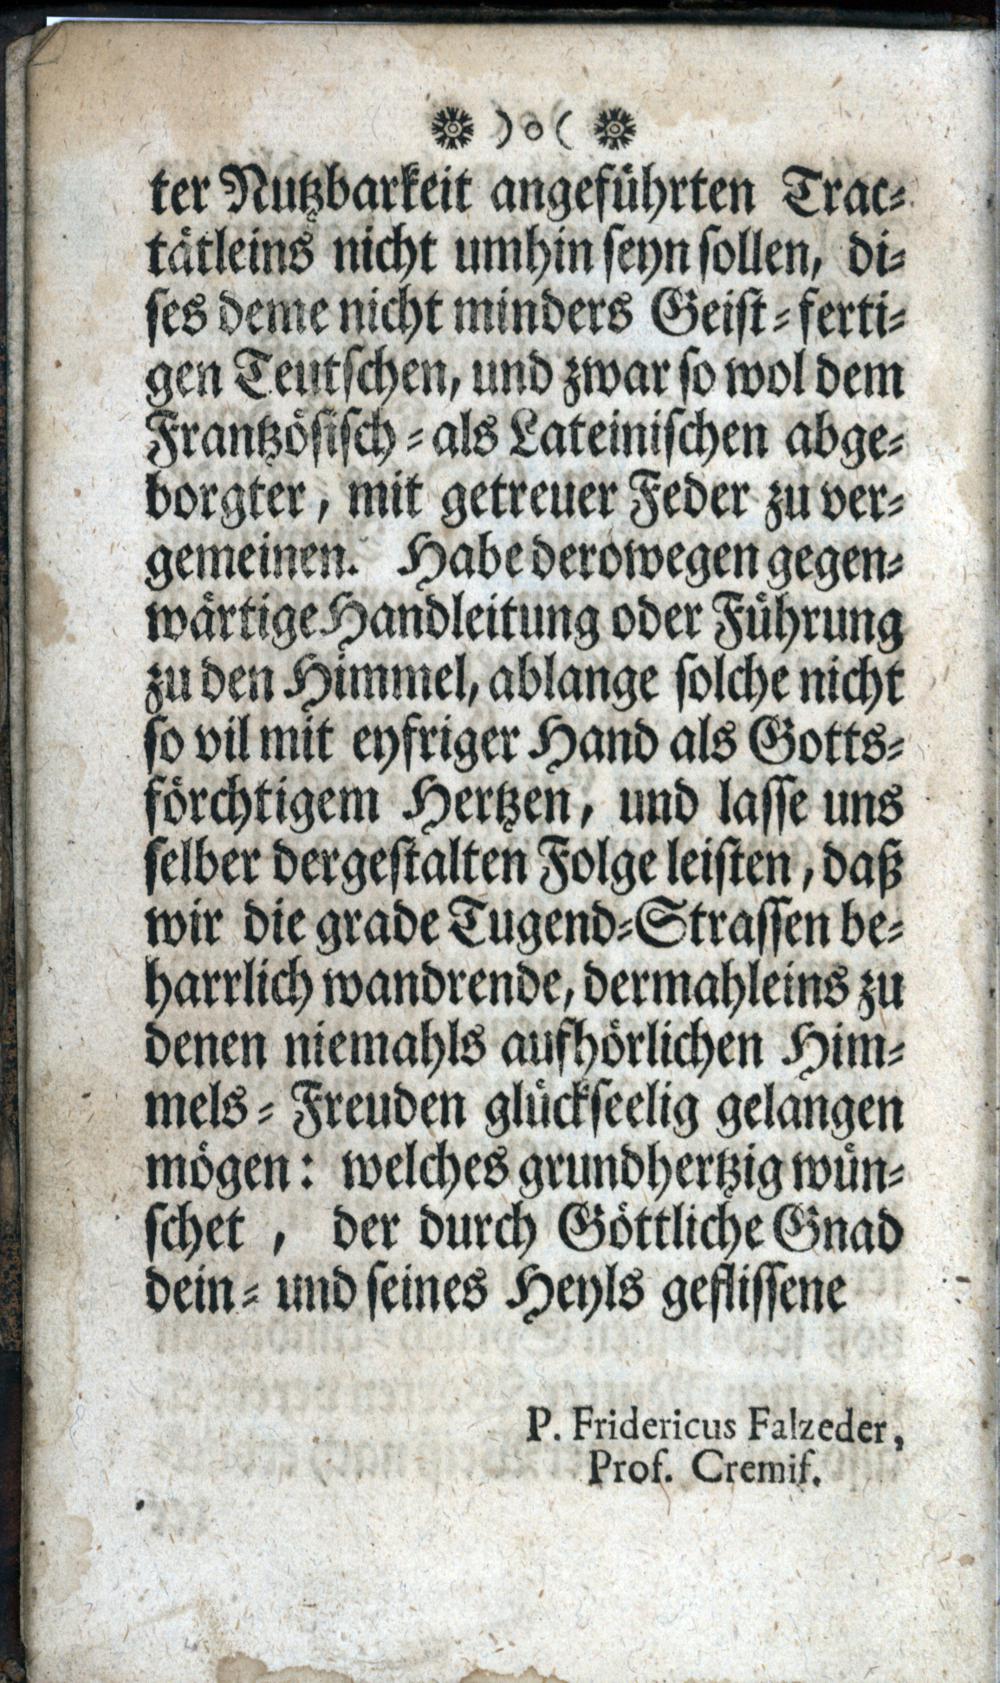 ❋ ) o ( ❋
ter Nutzbarkeit angeführten Trac-
tätleins nicht umhin seyn sollen, di-
ses deme nicht minders Geist-ferti-
gen Teutschen, und zwar so wol dem
Frantzösisch-als Lateinischen abge-
borgter, mit getreuer Feder zu ver-
gemeinen. Habe derowegen gegen-
wärtige Handleitung oder Führung
zu den Himmel, ablange solche nicht
so vil mit eyfriger Hand als Gotts-
förchtigem Hertzen, und lasse uns
selber dergestalten Folge leisten, daß
wir die grade Tugend-Strassen be-
harrlich wandrende, dermahleins zu
denen niemahls aufhörlichen Him-
mels-Freuden glückseelig gelangen
mögen: welches grundhertzig wün-
schet, der durch Göttliche Gnad
dein- und seines Heyls geflissene
P. Fridericus Falzeder,
Prof. Cremis.